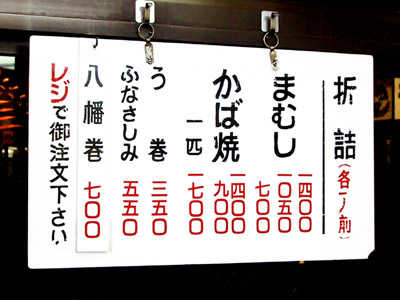 折詰(各一人前)
まむし 一四〇〇
一〇五〇
七〇〇
かば焼 一四〇〇
九〇〇
一匹 一七〇〇
う巻 三五〇
ふなさしみ 五五〇
八幡巻 七〇〇
レジで御注文下さい